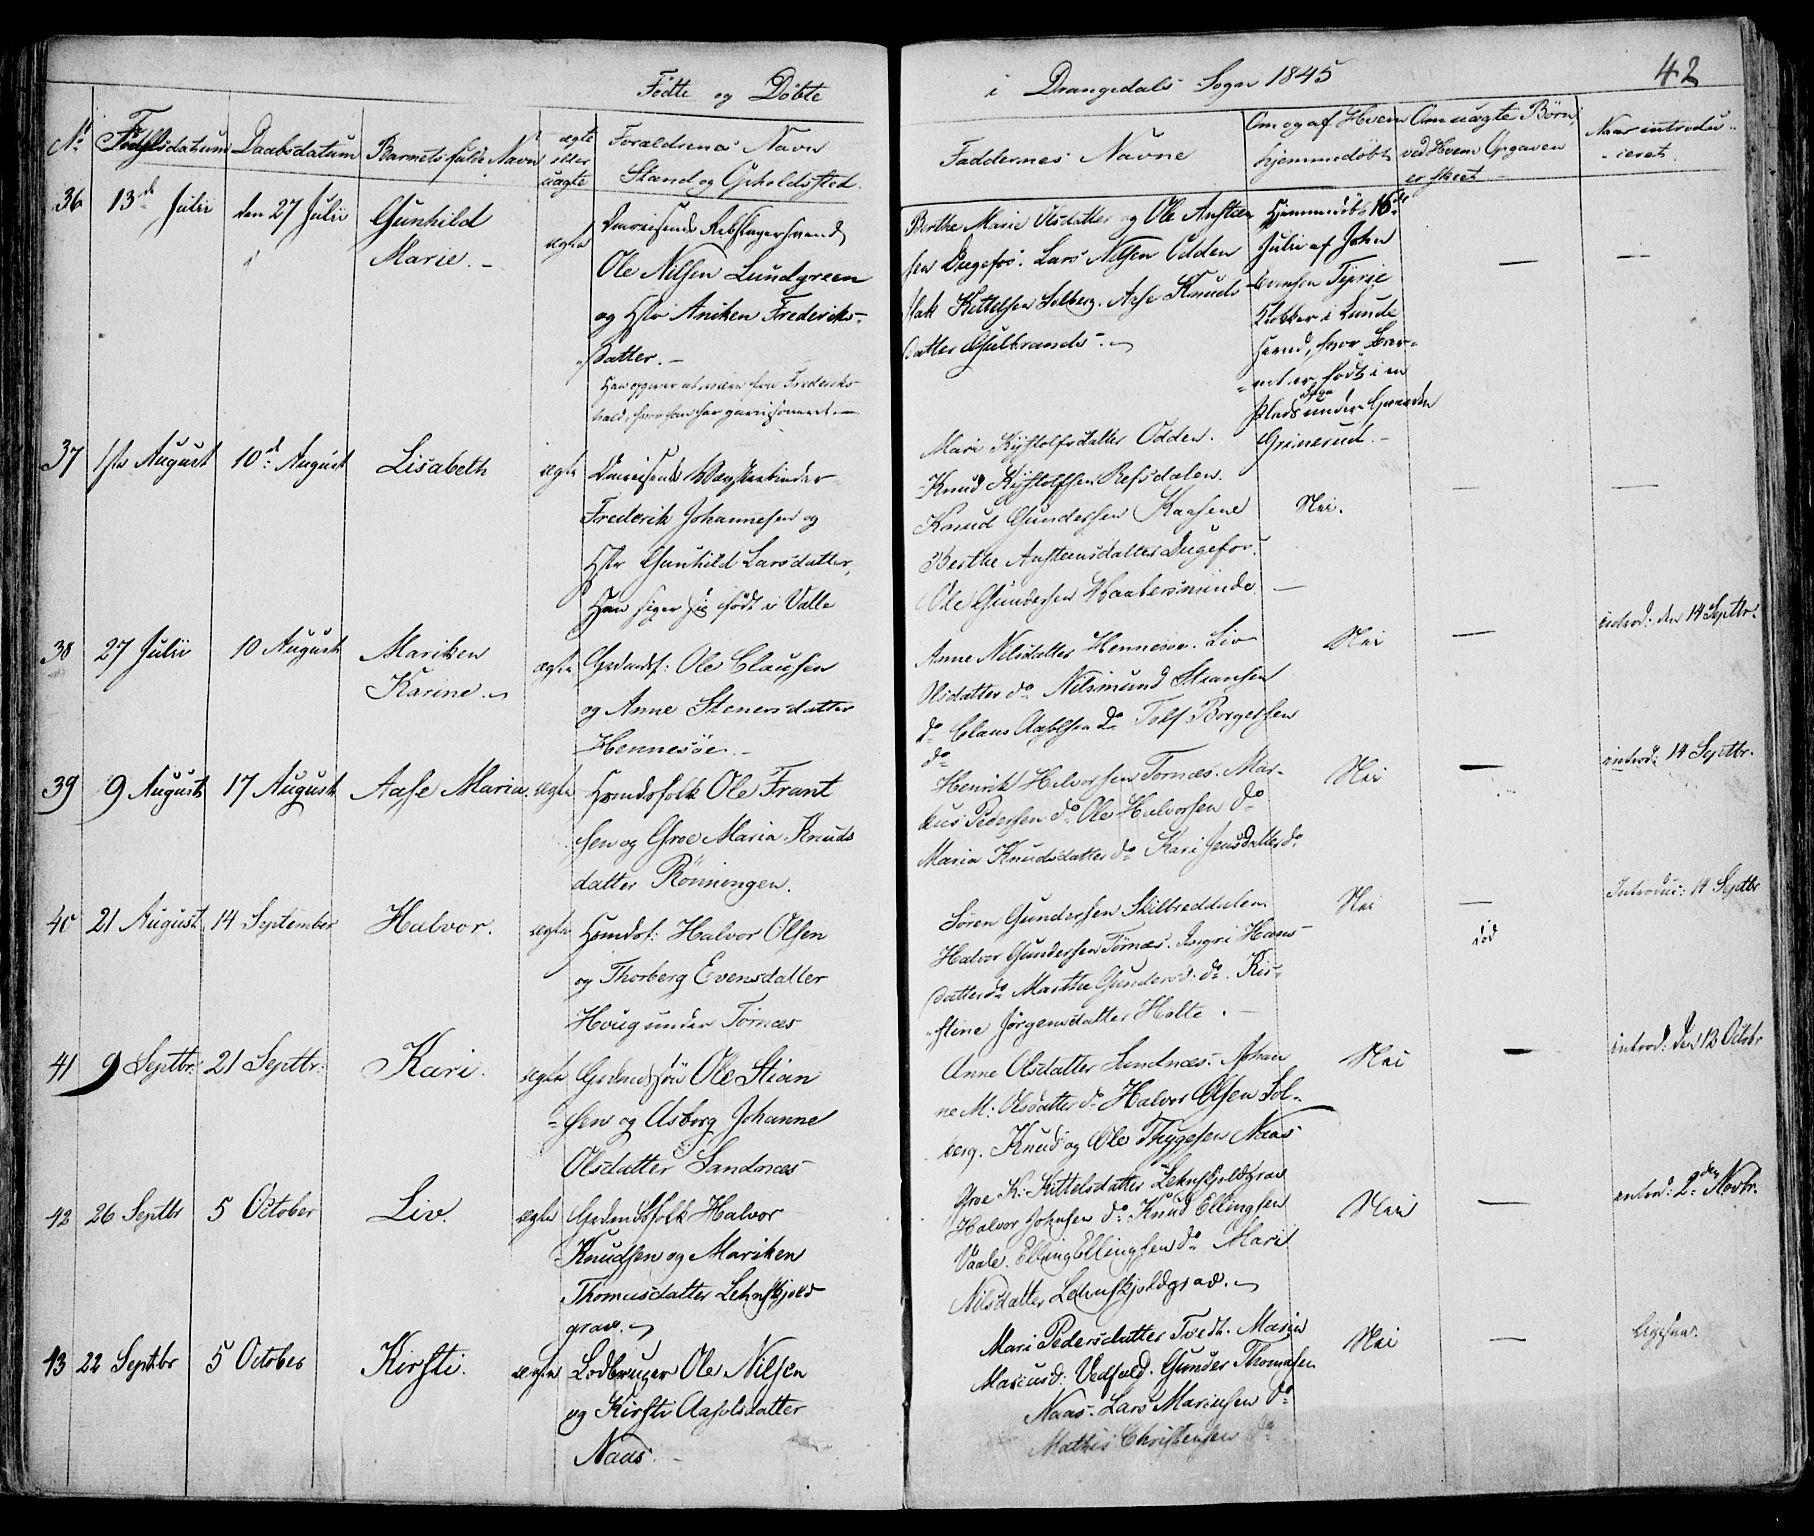 Fødte og Døbte
i Drangedals Sogn 1845
42
No
Fødselsdatum
Daabsdatum
Barnets fulde Navn
ægte
eller
uægte
Forældrenes Navn
Stand og Opholdssted.
Faddernes Navne
Om og af Hvem
hjemmedøbt
Om uægte Børn,
ved Hvem Opgaven
er skeet
Naar introdu-
ceret.
36
13de Julii
den 27 Julii
Gunhild
Marie. -
ægte
Omreisende
Ole Nilsen Lundgreen
og Hstr Aniken Frederiks-
datter. -
Han opgiver at være fra Frederiks-
hald, hvor han har garnisoneret. -
Berthe Marie Olsdatter og Ole Austen
sen Dugefos. Lars Nilsen Odden
Isak Kittelsen Solberg. Aase Knuds
datter Gulbrands -
Hjemmedøbt 16de
Julii af John
Evensen Tyrie
Klokker i Lunde
Sogn, hvor Bar-
net er født i en
Plads under Gaarden
Grinerud. -
—
—
37
1ste August
10de August
Lisabeth
ægte
Omreisende
Frederik Johannesen og
Hstr Gunhild Larsdatter,
Han siger sig født i Valle
Mari Kjystolfsdatter Odden.
Knud Kjystolfsen Refsdalen.
Knud Gundersen Kaasene
Berthe Austensdatter Dugefos.
Ole Gundersen
Nei.
—
—
38
27 Julii
10 August
Mariken
Karine.
ægte
Grdmdsf: Ole Clausen
og Anne Stenersdatter
Hennesøe. -
Anne Nilsdatter Hennesøe. Liv
Olsdatter do Nilsmund Stiansen
do Claus Aslesen do Tolf Borgersen
do
Nei
—
introd: den 14 Septbr.
39
9 August
17 August
Aase Maria.
ægte
Hsmdsfolk Ole Frant
sen og Groe Maria Knuds
datter Rønningen.
Henrik Halvorsen Tornæs. Mar-
kus Pedersen do Ole Halvorsen do
Maria Knudsdatter do Kari Jensdatter do
Nei
—
introd: 14 Septbr.
40
21 August
14 September
Halvor.
ægte
Hsmdsf: Halvor Olsen
og Thorberg Evensdatter
Houg under Tornæs
Søren Gundersen Skilbreddalen
Halvor Gundersen Tornæs. Ingri Hans-
datter do Marthe Gundersd: do. Kir-
stine Jørgensdatter Holte. -
Nei
—
Introduc: 14 Septbr
41
9 Septbr:
21 Septbr:
Kari.
ægte
Grdmdsfolk Ole Stian
sen og Asborg Johanne
Olsdatter Sandnæs
Anne Olsdatter Sandnæs. Johan
ne M: Olsdatter do Halvor Olsen Sol-
berg. Knud og Ole Thygesen Naas
Nei
—
introd: den 12 Octobr
42
26 Septbr
5 October
Liv.
ægte
Grdmdsfolk Halvor
Knudsen og Mariken
Thomasdatter Lehnskjold
grav.
Groe K: Kittelsdatter Lehnskjoldgrav
Halvor Johnsen do Knud Ellingsen
Vaale. Elling Ellingsen do Mari
Nilsdatter Lehnskjoldgrav.
Nei
—
introd: 2den Novbr.
43
22 Septbr
5 October
Kirsti.
ægte
Lodbruger Ole Nilsen
og Kirsti Aasolsdatter
Naas. -
Mari Pedersdatter Tvedt. Maren
Mariusd: Vedfald. Gunder Thomasen
Naas. Lars Mariusen do
Mathis Christensen do
Nei
—